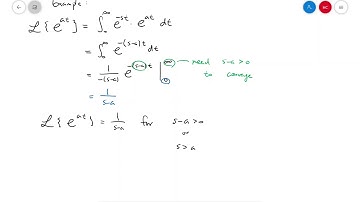 Example:
ℒ{e^{at}} = ∫_0^∞ e^{-st} · e^{at} dt
= ∫_0^∞ e^{-(s-a)t} dt
= 1/-(s-a) e^{-(s-a)t} |_0^∞ need s-a>0
to converge
= 1/s-a
ℒ{e^{at}} = 1/s-a for s-a>0
or
s>a